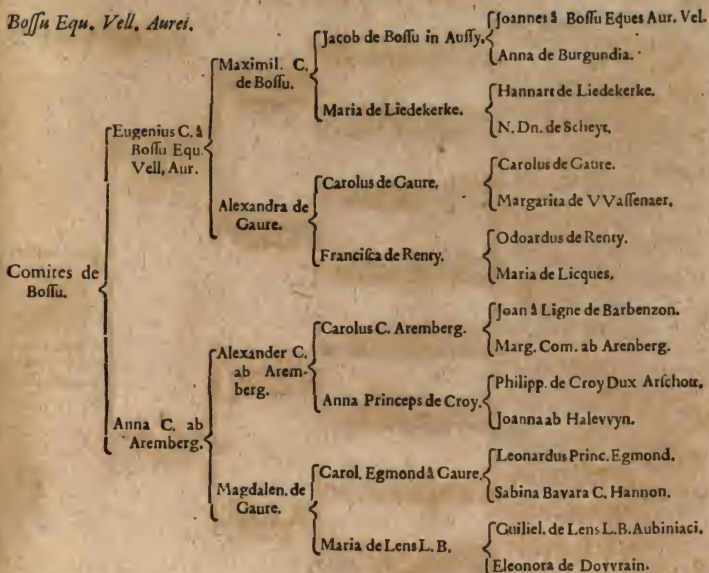 Bossu Equ. Vell. Aurei.
Comites de
Bossu.
Eugenius C. à
Bossu Equ.
Vell. Aur.
Anna C. ab
Aremberg.
Maximil. C.
de Bossu.
Alexandra de
Gaure.
Alexander C.
ab Arem-
berg.
Magdalen. de
Gaure.
Jacob de Bossu in Aussy.
Maria de Liedekerke.
Carolus de Gaure.
Francisca de Renty.
Carolus C. Aremberg.
Anna Princeps de Croy.
Carol. Egmond à Gaure.
Maria de Lens L. B.
Joannes à Bossu Eques Aur. Vel.
Anna de Burgundia.
Hannart de Liedekerke.
N. Dn. de Scheyt.
Carolus de Gaure.
Margarita de VVassenaer.
Odoardus de Renty.
Maria de Licques.
Joan à Ligne de Barbenzon.
Marg. Com. ab Arenberg.
Philipp. de Croy Dux Arschott.
Joanna ab Halevvyn.
Leonardus Princ. Egmond.
Sabina Bavara C. Hannon.
Guiliel. de Lens L. B. Aubiniaci.
Eleonora de Dovvrain.